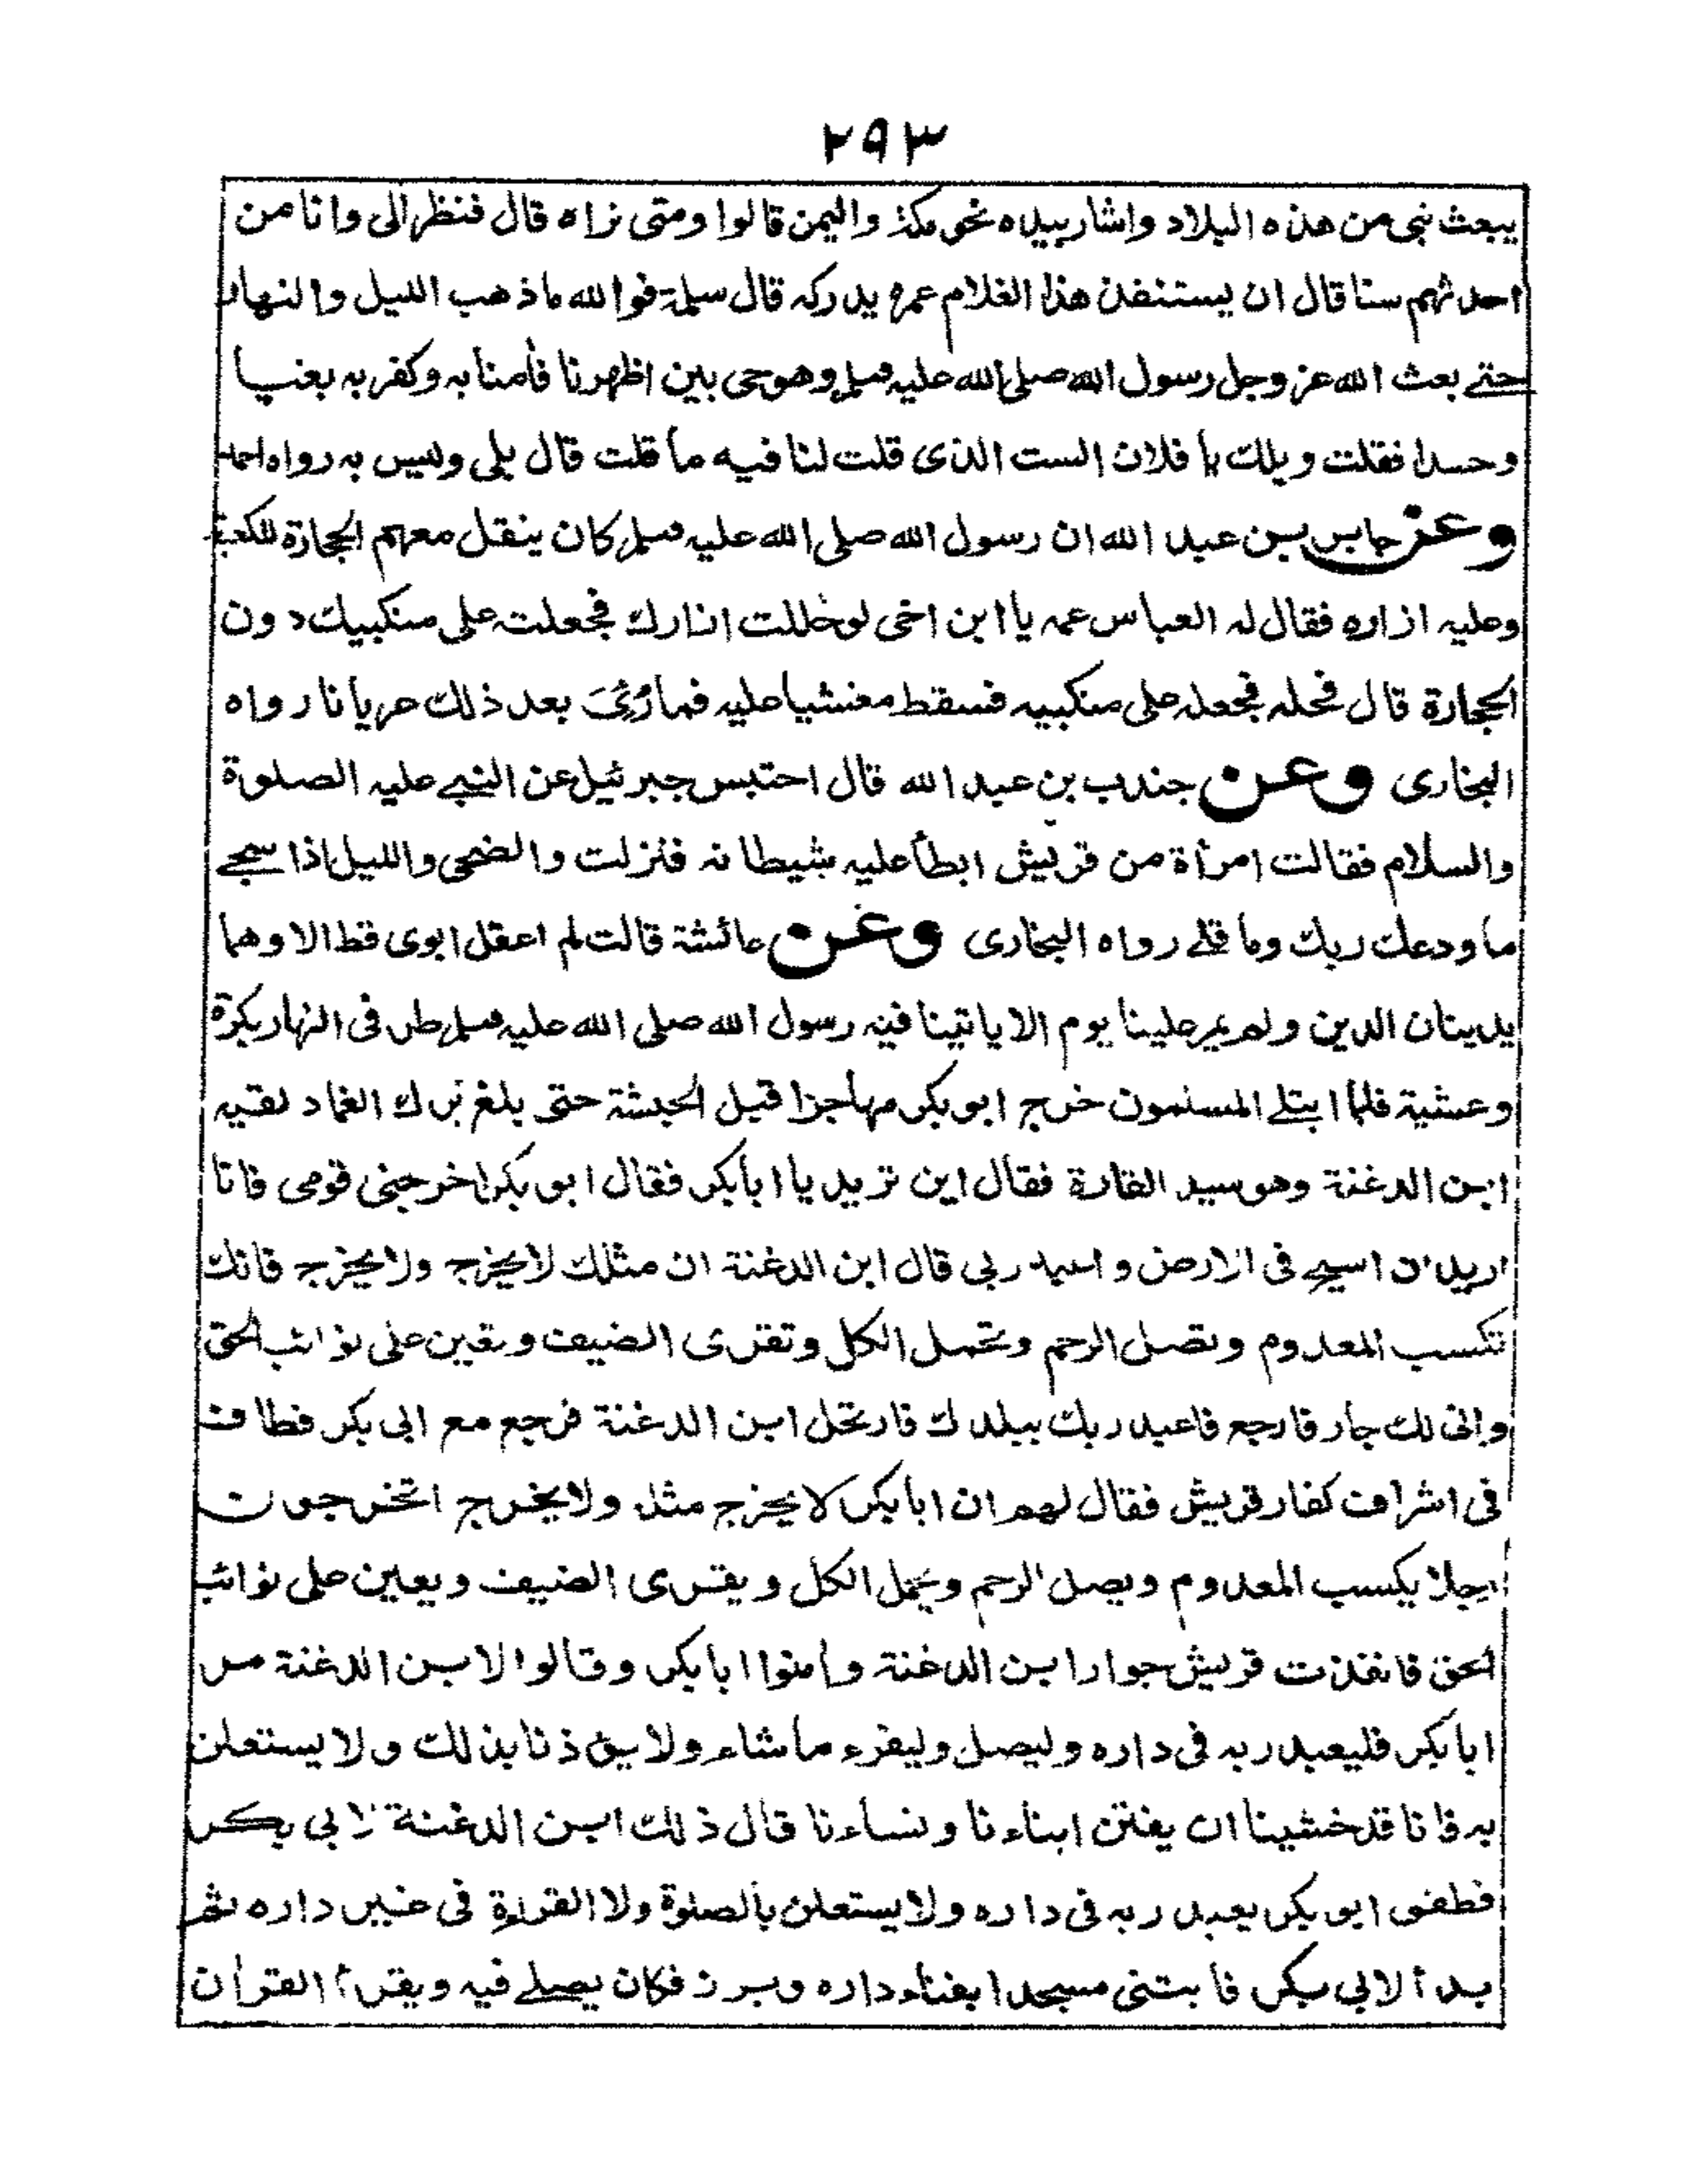 ٢٩٣
يبعث نبى من هذه البلاد واشار بيده نحو مكة واليمن قالوا ومتى نراه قال فنظر الى وانا من
احدثهم سنا قال ان يستنفذ هذا الغلام عمره يدركه قال سلمة فوالله ماذهب الليل والنهار
حتے بعث الله عز وجل رسول الله صلى الله عليه وسلم وهو حى بين اظهرنا فأمنا به وكفر به بغيا
وحسدا فقلت ويلك يا فلان الست الذى قلت لنا فيه ما قلت قال بلى وليس به رواه احمد
وعن جابر بن عبد الله ان رسول الله صلى الله عليه وسلم كان ينقل معهم الحجارة للكعبة
وعليه ازاره فقال له العباس عمه يا ابن اخى لو حللت ازارك فجعلت على منكبيك دون
الحجارة قال فحله فجعله على منكبيه فسقط مغشيا عليه فمارُئِىَ بعد ذلك عريانا رواه
البخارى وعن جندب بن عبد الله قال احتبس جبرئيل عن النبے عليه الصلوة
والسلام فقالت امرأة من قريش ابطأ عليه شيطانه فنزلت والضحى والليل اذا سجے
ما ودعك ربك وما قلے رواه البخارى وعن عائشة قالت لم اعقل ابوى قط الا وهما
يدينان الدين ولم يمر علينا يوم الا ياتينا فيه رسول الله صلى الله عليه وسلم طر فى النهار بكرة
وعشية فلما ابتلے المسلمون خرج ابو بكر مهاجرا قبل الحبشة حتى بلغ برك الغماد لقيه
ابن الدغنة وهو سيد القارة فقال اين تريد يا ابا بكر فقال ابو بكر اخرجنى قومى فانا
اريد ان اسيح فى الارض واعبد ربى قال ابن الدغنة ان مثلك لا يخرج ولا يخرج فانك
تكسب المعدوم وتصل الرحم وتحمل الكل وتقرى الضيف وتعين على نوائب الحق
وانى لك جار فارجع فاعبد ربك ببلدك فارتحل ابن الدغنة فرجع مع ابى بكر فطاف
فى اشراف كفار قريش فقال لهم ان ابا بكر لا يخرج مثله ولا يخرج اتخرجون
رجلا يكسب المعدوم ويصل الرحم ويحمل الكل ويقرى الضيف ويعين على نوائب
الحق فانفذت قريش جوار ابن الدغنة وأمنوا ابا بكر وقالوا لابن الدغنة مر
ابا بكر فليعبد ربه فى داره وليصل وليقرء ما شاء ولا يؤذنا بذلك ولا يستعلن
به فانا قد خشينا ان يفتن ابناءنا ونساءنا قال ذلك ابن الدغنة لابى بكر
فطفق ابو بكر يعبد ربه فى داره ولا يستعلن بالصلوة ولا القراءة فى غير داره ثم
بدأ لابى بكر فابتنى مسجدا بفناء داره وبرز فكان يصلے فيه ويقرأ القرأن